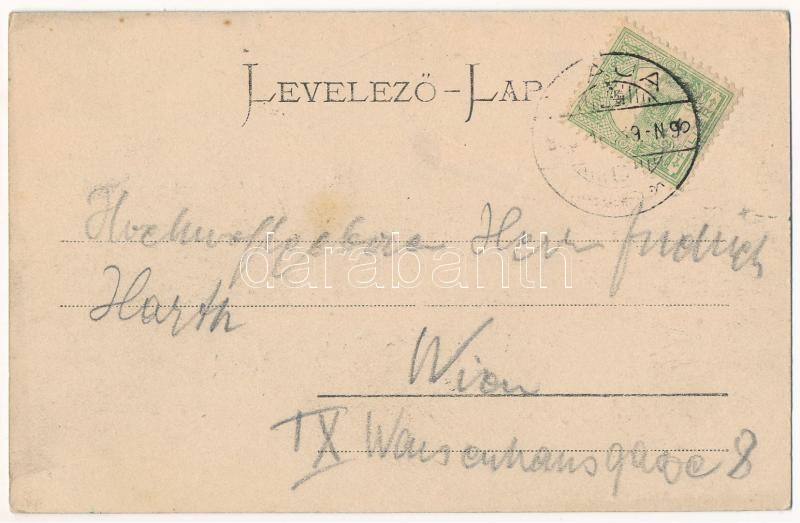 LEVELEZŐ-LAP
Hochwohlgeboren Herrn Friedrich
Harth
Wien
IX Waisenhausgasse 8
darabanth